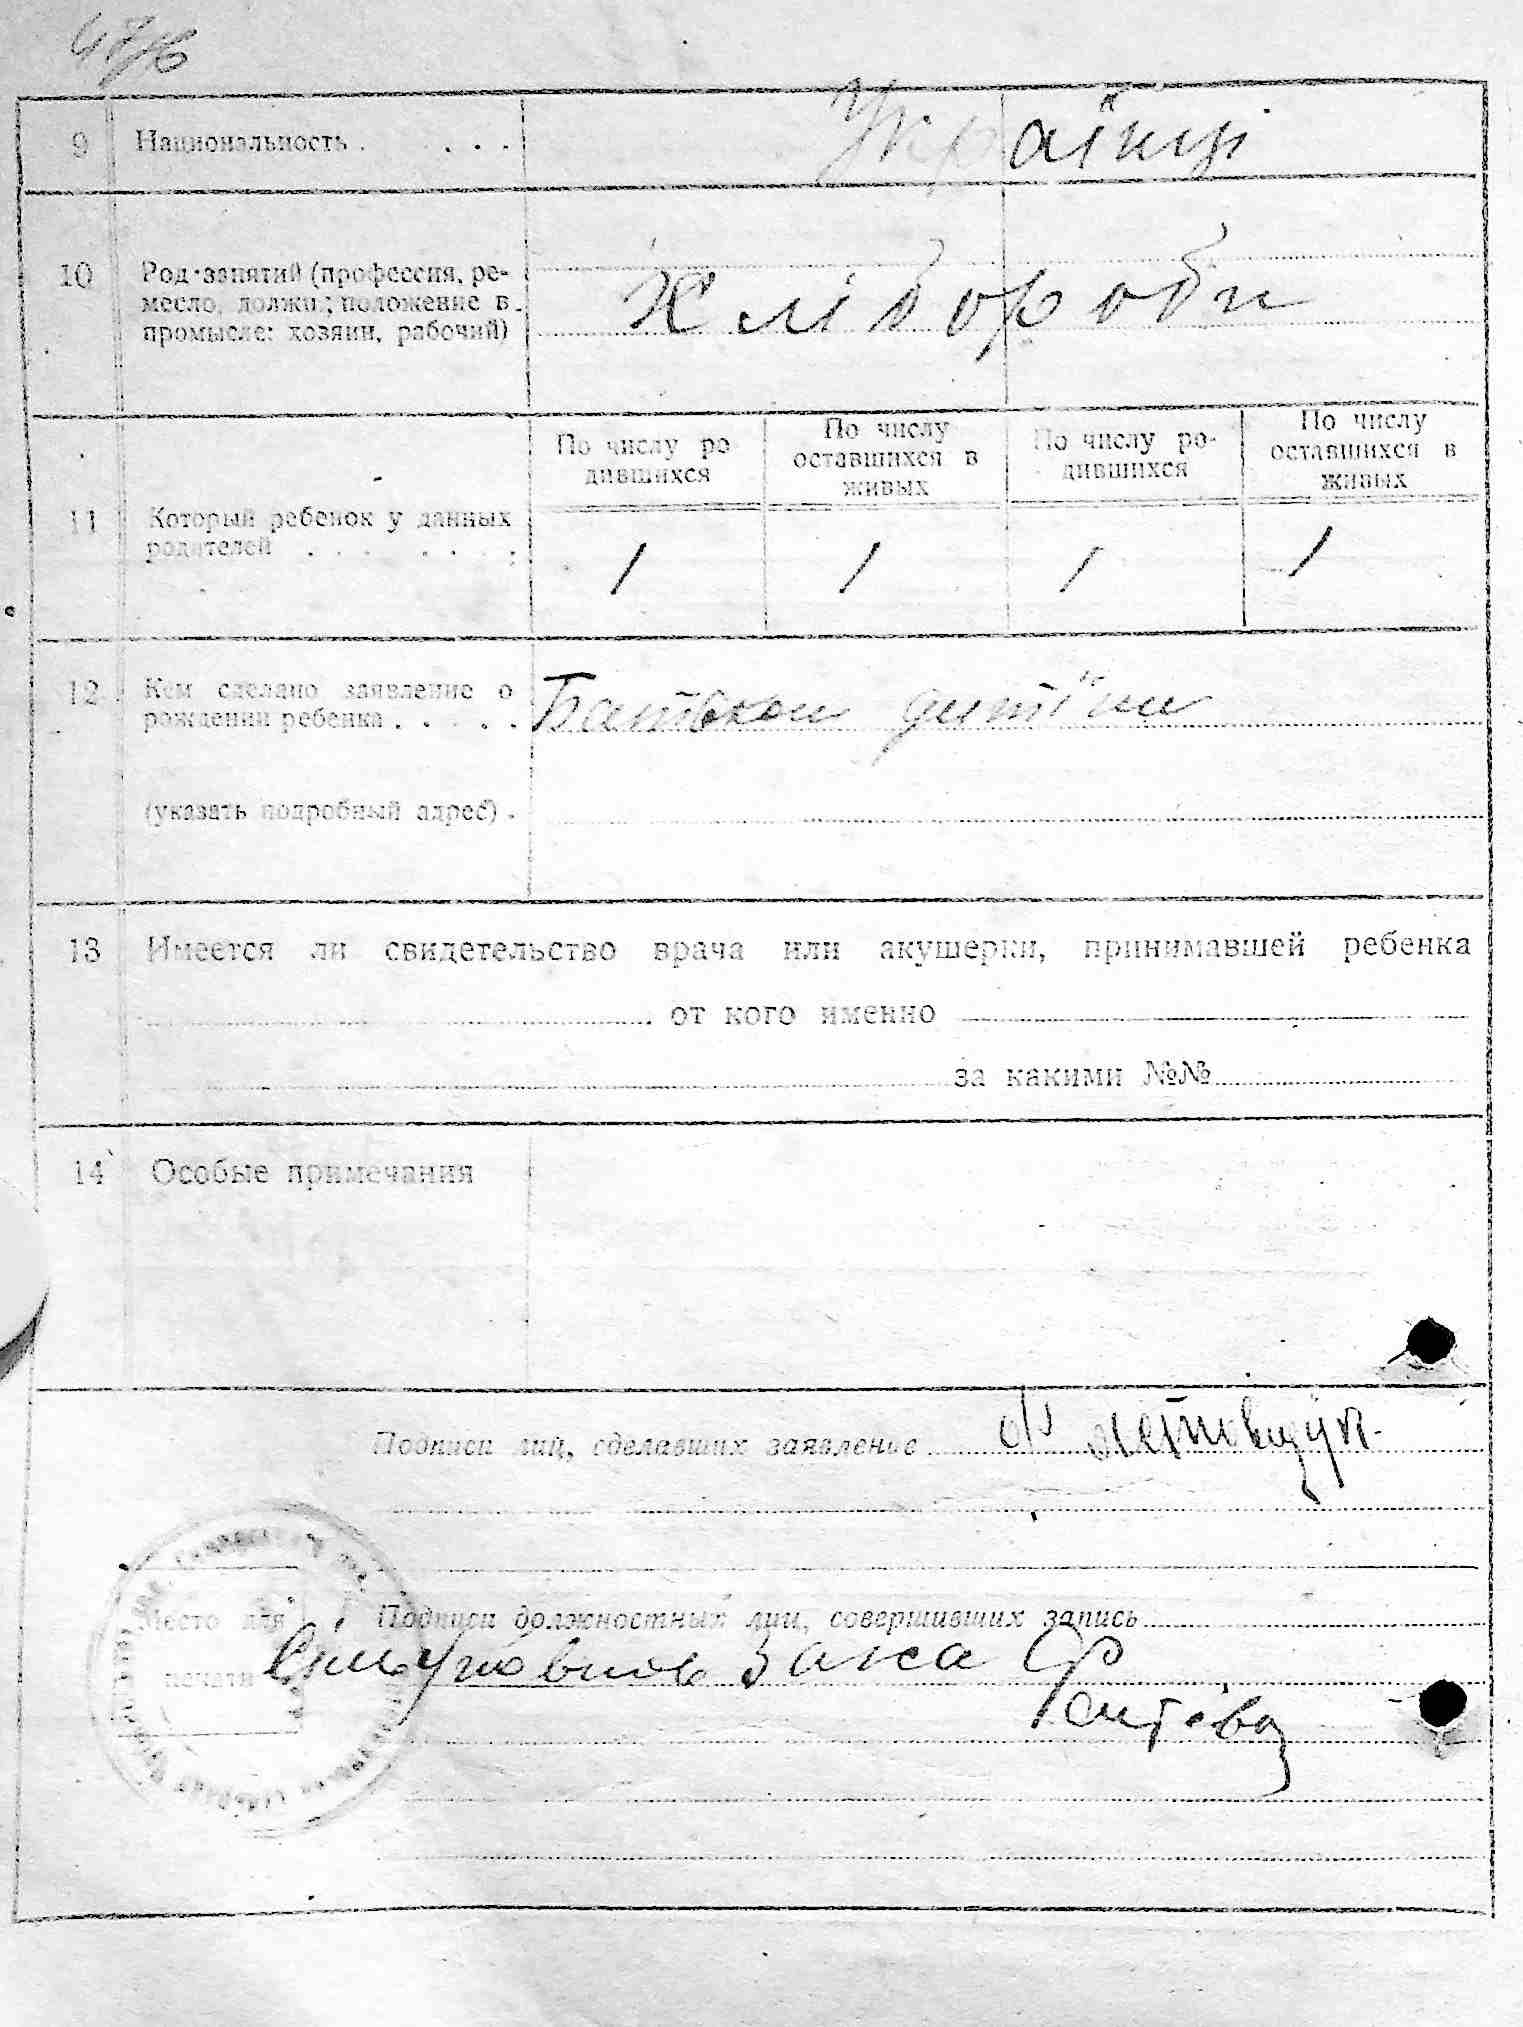 47/б
9 Национальность . . . . Українці
10 Род занятий (профессия, ре-
месло, должн.; положение в
промысле: хозяин, рабочий)
Хлібороби
По числу ро
дившихся
По числу
оставшихся в
живых
По числу ро-
дившихся
По числу
оставшихся в
живых
11 Который ребенок у данных
родителей . . . . . . .
1 1 1 1
12 Кем сделано заявление о
рождении ребенка . . . . .
Батьком дитини
(указать подробный адрес) .
13 Имеется ли свидетельство врача или акушерки, принимавшей ребенка
от кого именно
за какими №№
14 Особые примечания
Подписи лиц, сделавших заявление
Место для
печати
Подписи должностных лиц, совершивших запись